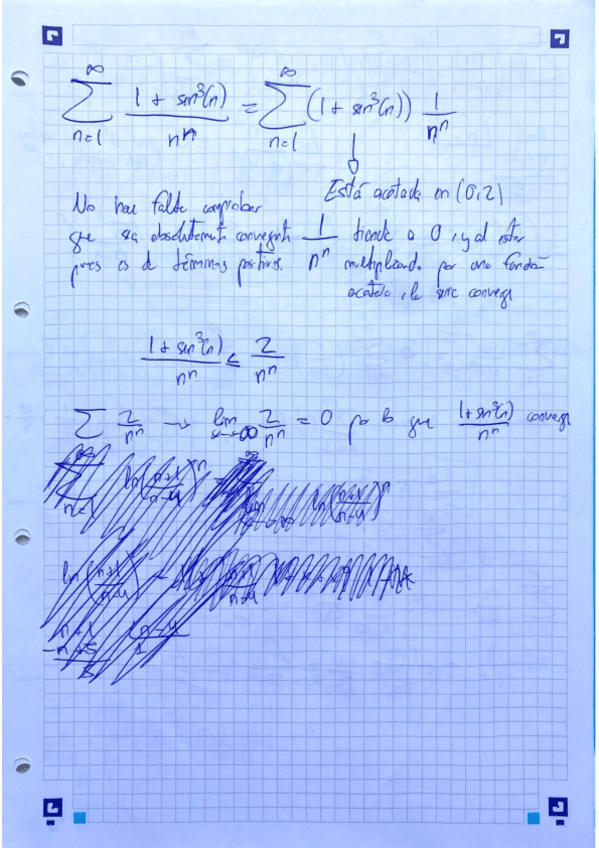 ∞ ∞
∑ (1 + sin³(n)) / nⁿ = ∑ (1 + sin³(n)) 1/nⁿ
n=1 n=1
Está acotada en (0,2)
No hace falta comprobar
que sea absolutamente convergente
pues es de términos positivos.
1/nⁿ tiende a 0, y al estar
multiplicando por una función
acotada, la serie converge
(1 + sin³(n)) / nⁿ ≤ 2/nⁿ
∑ 2/nⁿ → lim 2/nⁿ = 0 por lo que (1 + sin³(n)) / nⁿ converge